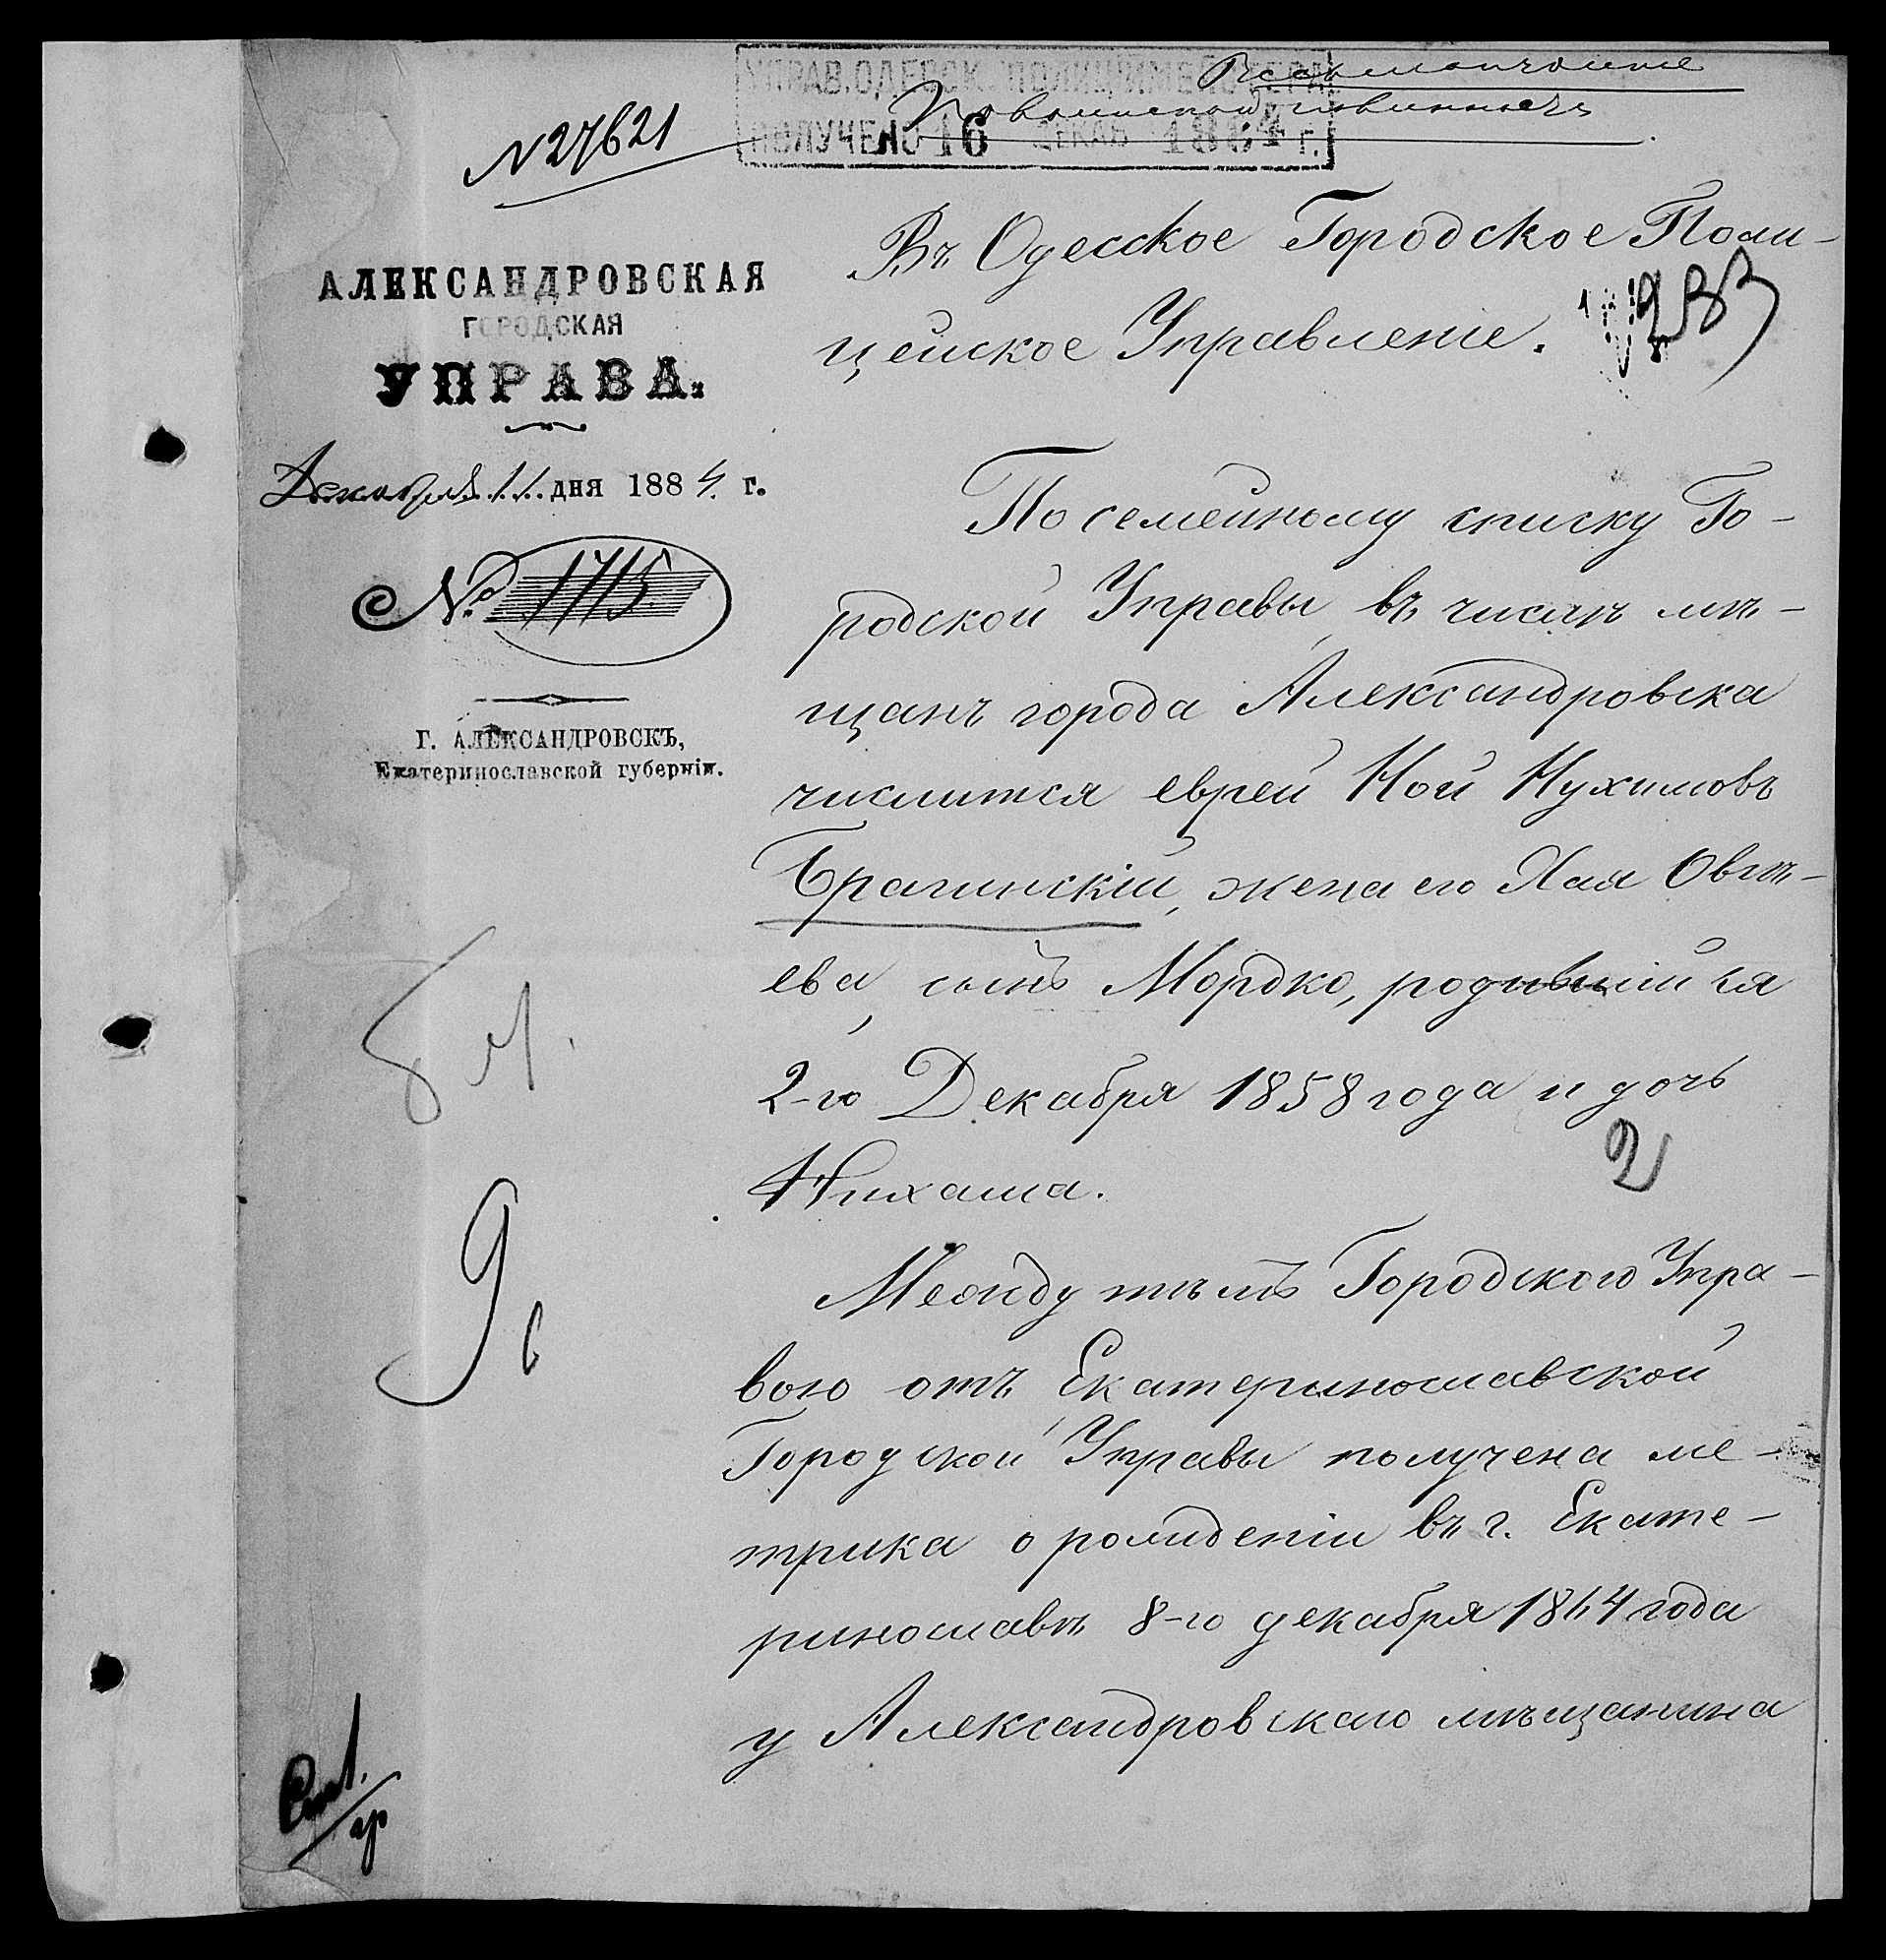 УПРАВ. ОДЕССК. ПОЛИЦІЙМЕЙСТЕРА
ПОЛУЧЕНО 16 ДЕКАБ 1884 г.
По воинской повинности
№ 27621
АЛЕКСАНДРОВСКАЯ
ГОРОДСКАЯ
УПРАВА.
Декабря 11 дня 1884 г.
№ 1715
Г. АЛЕКСАНДРОВСКЪ,
Екатеринославской губерніи.
Въ Одесское Городское Поли-
цейское Управленіе.
По семейному списку Го-
родской Управы въ числѣ мѣ-
щанъ города Александровска
числится еврей Ной Нухимовъ
Брагинскій, жена его Хая Овсѣ-
ева, сынъ Мордко, родившійся
2-го Декабря 1858 года и дочь
2
Между тѣмъ Городскою Упра-
вою отъ Екатеринославской
Городской Управы получена ме-
трика о рожденіи въ г. Екате-
ринославѣ 8-го декабря 1864 года
у Александровскаго мѣщанина